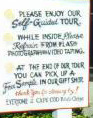 PLEASE ENJOY OUR
Self-Guided TOUR.
WHILE INSIDE, Please
Refrain FROM FLASH
PHOTOGRAPHY & VIDEO TAPING.
AT THE END OF OUR TOUR
YOU CAN PICK UP A
Free Sample IN OUR GIFT SHOP.
Thank You for sharing it!
EVERYONE @ CAPE COD